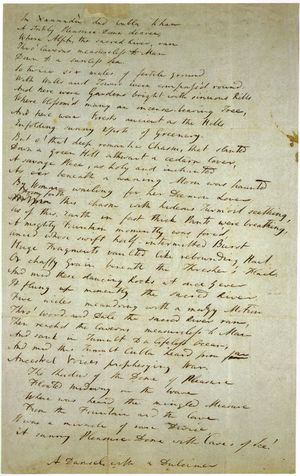 In Xannadù did Cubla Khan
A stately Pleasure-Dome decree;
Where Alph, the sacred River, ran
Thro' Caverns measureless to Man
Down to a sunless Sea.
So twice six miles of fertile ground
With Walls and Towers were compass'd round:
And here were Gardens bright with sinuous Rills
Where blossom'd many an incense-bearing Tree,
And here were Forests ancient as the Hills
Enfolding sunny Spots of Greenery.
But o! that deep romantic Chasm, that slanted
Down a green Hill athwart a cedarn Cover,
A savage Place, as holy and inchanted
As e'er beneath a waning Moon was haunted
By Woman wailing for her Daemon Lover:
From forth this Chasm with hideous Turmoil seething,
As if this Earth in fast thick Pants were breathing,
A mighty Fountain momently was forc'd,
Amid whose swift half-intermitted Burst
Huge Fragments vaulted like rebounding Hail,
Or chaffy Grain beneath the Thresher's Flail.
And mid these dancing Rocks at once & ever
It flung up momently the sacred River.
Five miles meandring with a mazy Motion
Thro' Wood and Dale the sacred River ran,
Then reach'd the Caverns measureless to Man
And sank in Tumult to a lifeless Ocean;
And mid this Tumult Cubla heard from far
Ancestral Voices prophesying War.
The Shadow of the Dome of Pleasure
Floated midway on the Wave
Where was heard the mingled Measure
From the Fountain and the Cave.
It was a miracle of rare Device,
A sunny Pleasure-Dome with Caves of Ice!
A Damsel with a Dulcimer